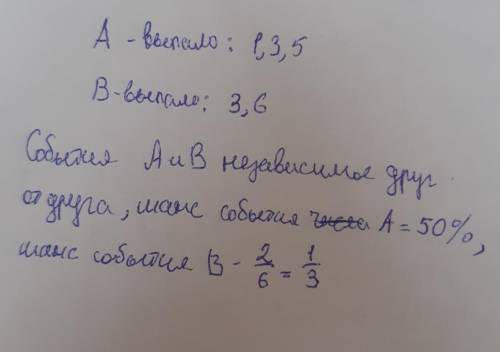 А - выпало: 1, 3, 5
В - выпало: 3, 6
События А и В независимое друг
от друга, шанс события А = 50%,
шанс события В - 2/6 = 1/3